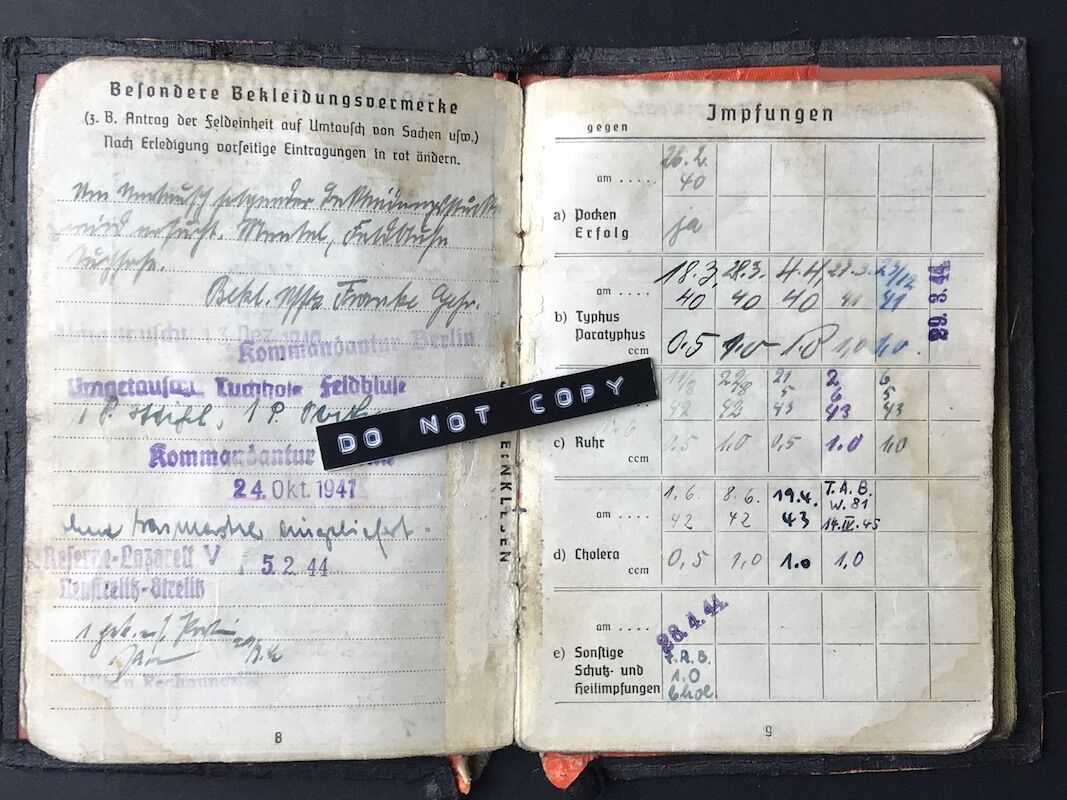 Besondere Bekleidungsvermerke
(z. B. Antrag der Feldeinheit auf Umtausch von Sachen usw.)
Nach Erledigung vorseitige Eintragungen in rot ändern.
Um Umtausch folgender Bekleidungsstücke
wird ersucht. Mantel, Feldbluse
Tuchhose.
Bekl. Uffz Franke Gefr.
Kommandantur Berlin
Umgetauscht Tuchhose Feldbluse
1 P. 1 P.
Kommandantur
24. Okt. 1941
ohne Gasmaske eingeliefert.
Reserve-Lazarett V 5. 2. 44
Neustrelitz-Strelitz
8
DO NOT COPY
EINKLEBEN
Impfungen
gegen
am . . . . 26. 2. 40
a) Pocken
Erfolg ja
am . . . . 18.3. 40 28.3. 40 4.4. 40 41 23/12 41 29. 3. 44
b) Typhus
Paratyphus
ccm 0.5 1.0 1.0 1,0 1,0
42 22/8 42 21 5 43 2 6 43 6 5 43
c) Ruhr
ccm 0.5 1.0 0,5 1.0 1.0
am . . . . 1. 6. 42 8. 6. 42 19.4. 43 T.A.B. W. 81 14.IV.45
d) Cholera
ccm 0,5 1,0 1.0 1,0
am . . . . 28. 4. 44
e) Sonstige
Schutz- und
Heilimpfungen
T.A.B.
1.0
Chol
9